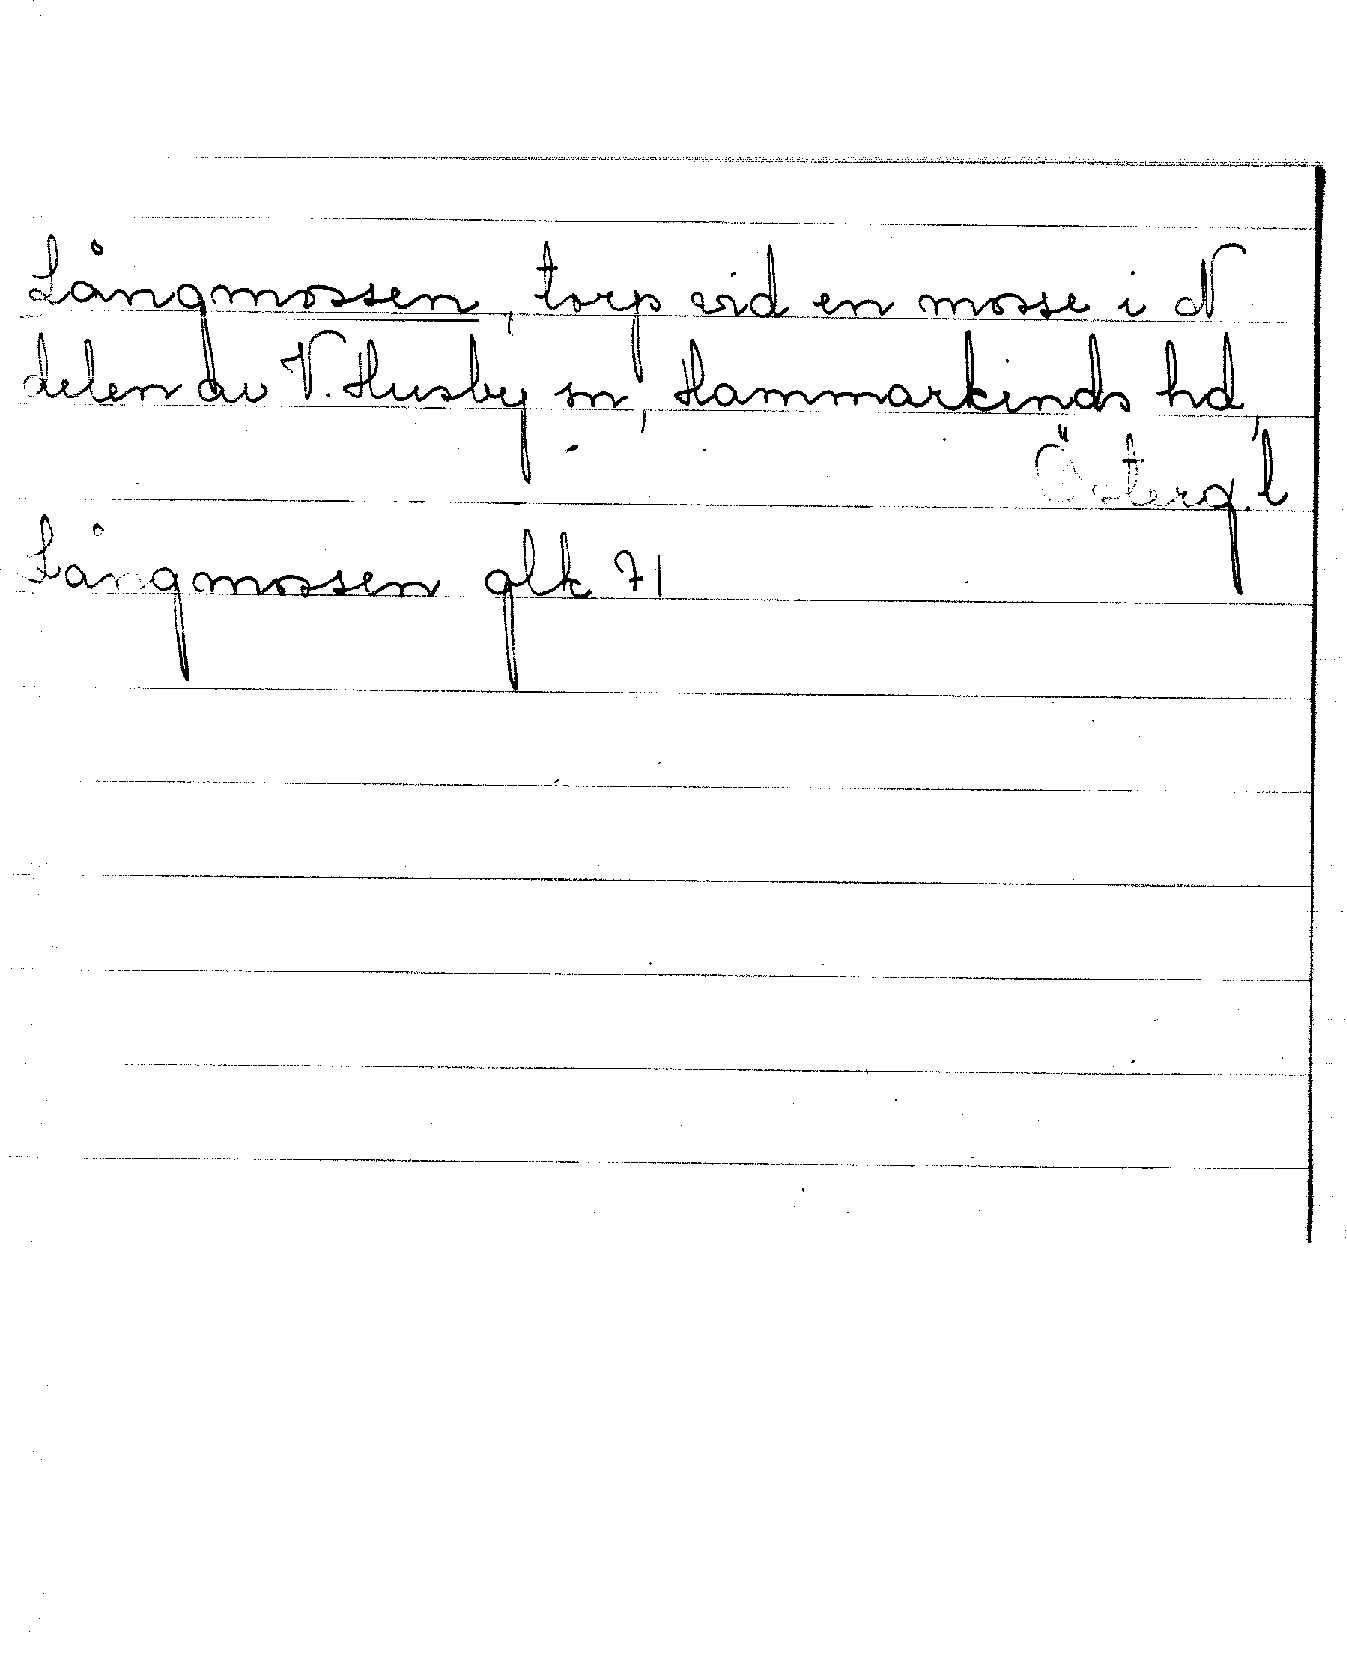 Långmossen, torp vid en mosse i N
delen av V. Husby sn, Hammarkinds hd,
Österg. l
Långmossen glk 71